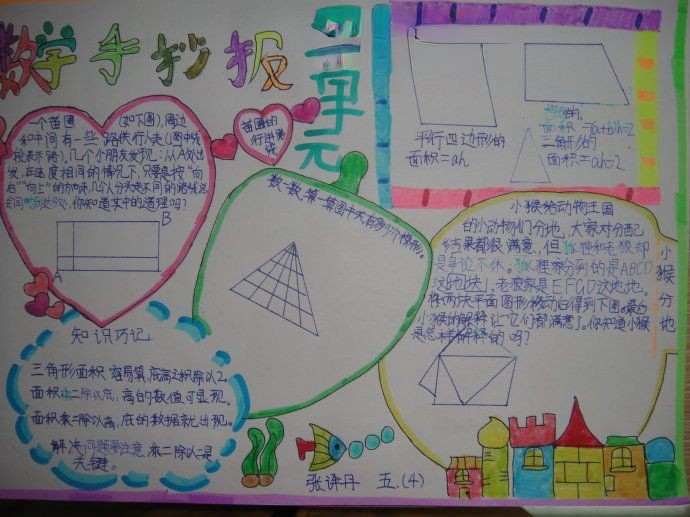 数学手抄报
四单元
一个苗圃(如下图),周边
和中间有一些路供行人走(图中线
段表示路),几个小朋友发现:从A处出
发,在速度相同的情况下,只要是按“向
右”“向上”的方向走,几个人分头走不同的路线总
会同时到达B处,你知道其中的道理吗?
B
A
苗圃的
行进路
线
平行四边形的
面积=ah
梯形的
面积=(a+b)h÷2
三角形的
面积=ah÷2
数一数,第一幅图中共有多少个梯形。
小猴分地
小猴给动物王国
的小动物们分地,大家对分配
结果都很满意,但狐狸和老狼却
是争论不休。狐狸家分到的是ABCD
这地块,老狼家是EFGD这地地。
将两块平面图形移动后得到下图。最后
小猴的解释让它们都满意了。你知道小猴
是怎样解释的吗?
知识巧记
三角形面积容易算,底高之积除以2。
面积乘二除以底,高的数值可显现。
面积乘二除以高,底的数据就出现。
解决问题要注意,乘二除以二是
关键。
五.(4)